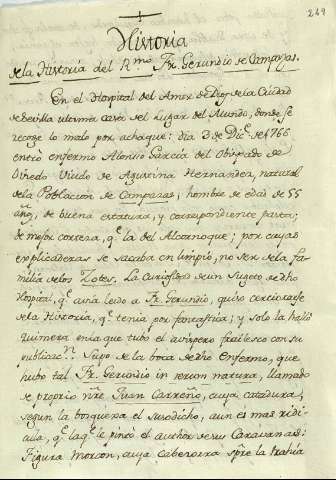 249
Historia
de la Historia del R.mo Fr. Gerundio de Campazas.
En el Hospital del Amor de Dios de la Ciudad
de Sevilla ultima casa del Lugar del Mundo, donde se
recoge lo malo por achaque: dia 3 de Dic.e de 1766
entró enfermo Alonso García del Obispado de
Oviedo Viudo de Agustina Hernandez, natural
de la Poblacion de Campazas; hombre de edad de 55
años, de buena estatura, y correspondiente pasta;
de mejor corteza, q.e la del Alcornoque; por cuyas
explicaderas se sacaba en limpio, no ser de la fa-
milia de los Zotes. La curiosidad de un Sugeto de dho
Hospital, q.e avia leido a Fr. Gerundio, quiso certiorarse
de la Historia, q.e tenia por fantastica; y solo la halló
quimera en la que tubo el avispero frailesco con su
publicac.n Supo de la boca de dho Enfermo, que
hubo tal Fr. Gerundio in rerum natura, llamado
de proprio nr̃e Juan Carreño, cuya catadura,
segun la bosqueja el susodicho, aun es mas ridi-
cula, q.e la q.e le pintó el author de su Caravanas:
Figura morcon, cuya cabezorra sp̃re la trahía